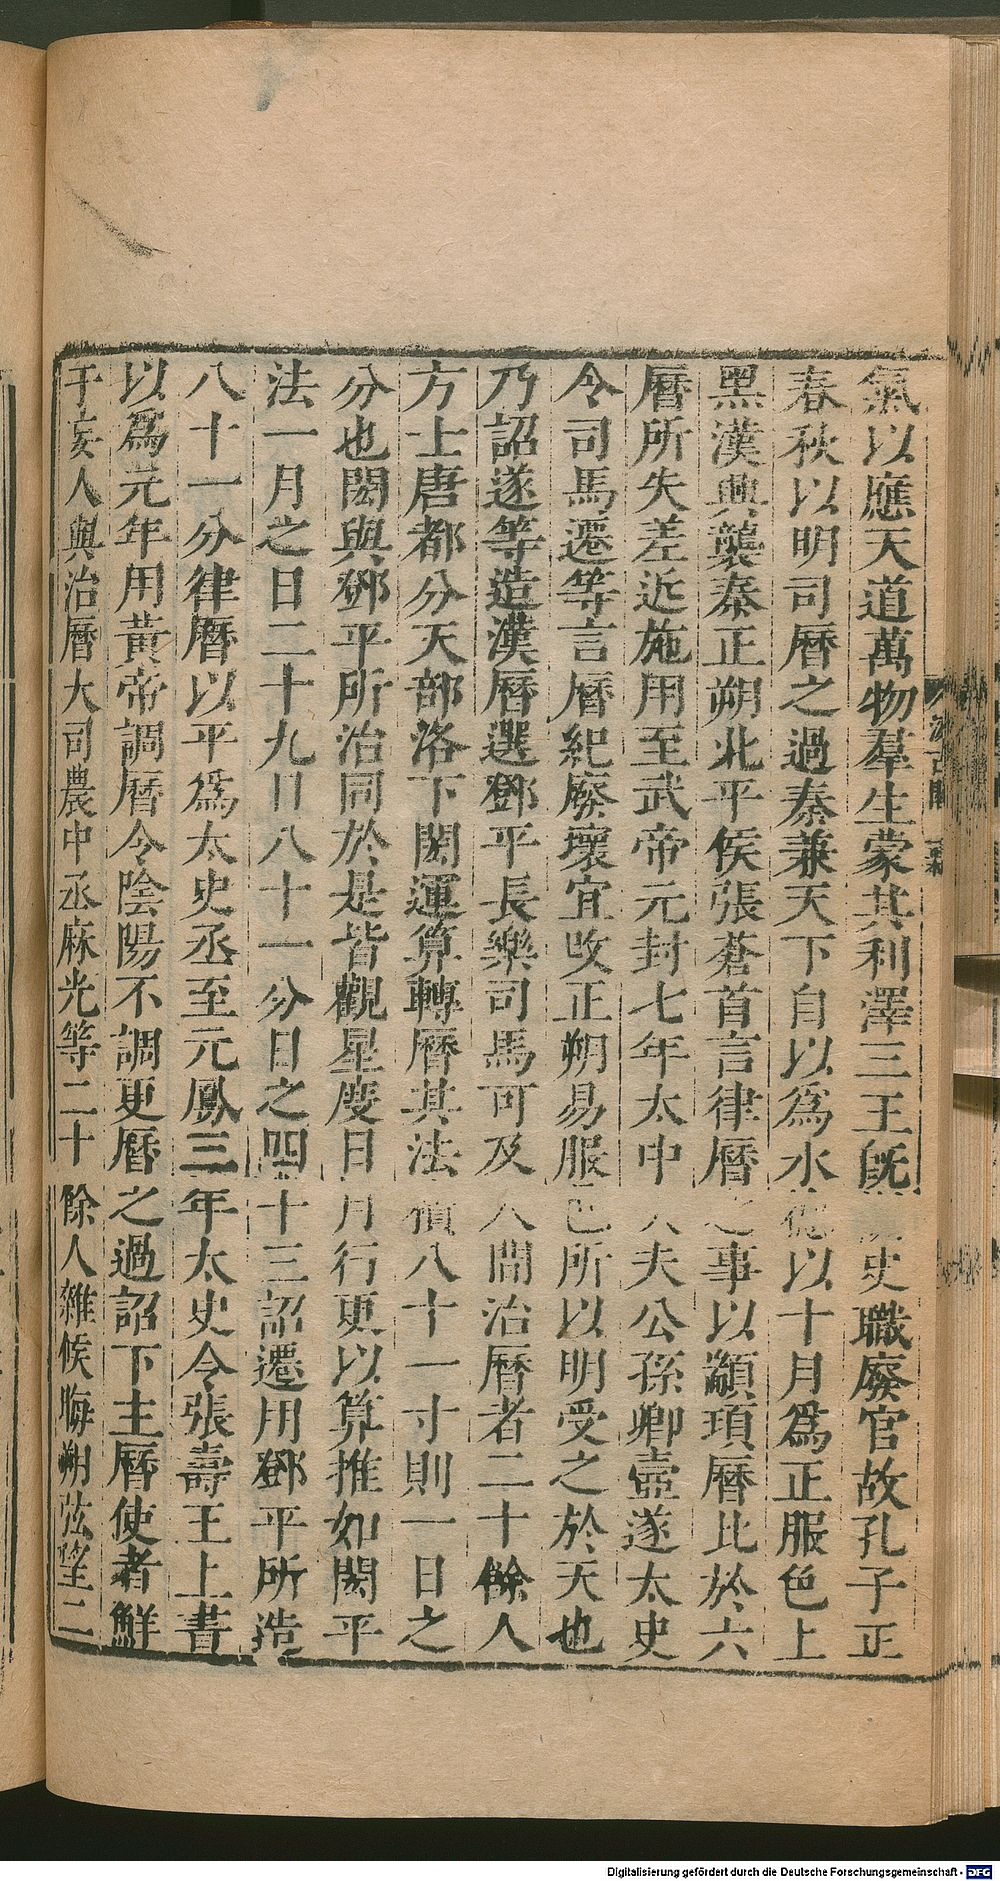 氣以應天道萬物羣生蒙其利澤三王旣史職廢官故孔子正
春秋以明司曆之過秦兼天下自以爲水德以十月爲正服色上
黑漢興襲秦正朔北平侯張蒼首言律曆之事以顓頊曆比於六
曆所失差近施用至武帝元封七年太中大夫公孫卿壼遂太史
令司馬遷等言曆紀廢壞宜改正朔易服色所以明受之於天也
乃詔遂等造漢曆選鄧平長樂司馬可及人間治曆者二十餘人
方士唐都分天部洛下閎運算轉曆其法積八十一寸則一日之
分也閎與鄧平所治同於是皆觀星度日月行更以算推如閎平
法一月之日二十九日八十一分日之四十三詔遷用鄧平所造
八十一分律曆以平爲太史丞至元鳳三年太史令張壽王上書
以爲元年用黃帝調曆令陰陽不調更曆之過詔下主曆使者鮮
于妄人與治曆大司農中丞麻光等二十餘人雜候晦朔弦望二
汲古閣
Digitalisierung gefördert durch die Deutsche Forschungsgemeinschaft - DFG